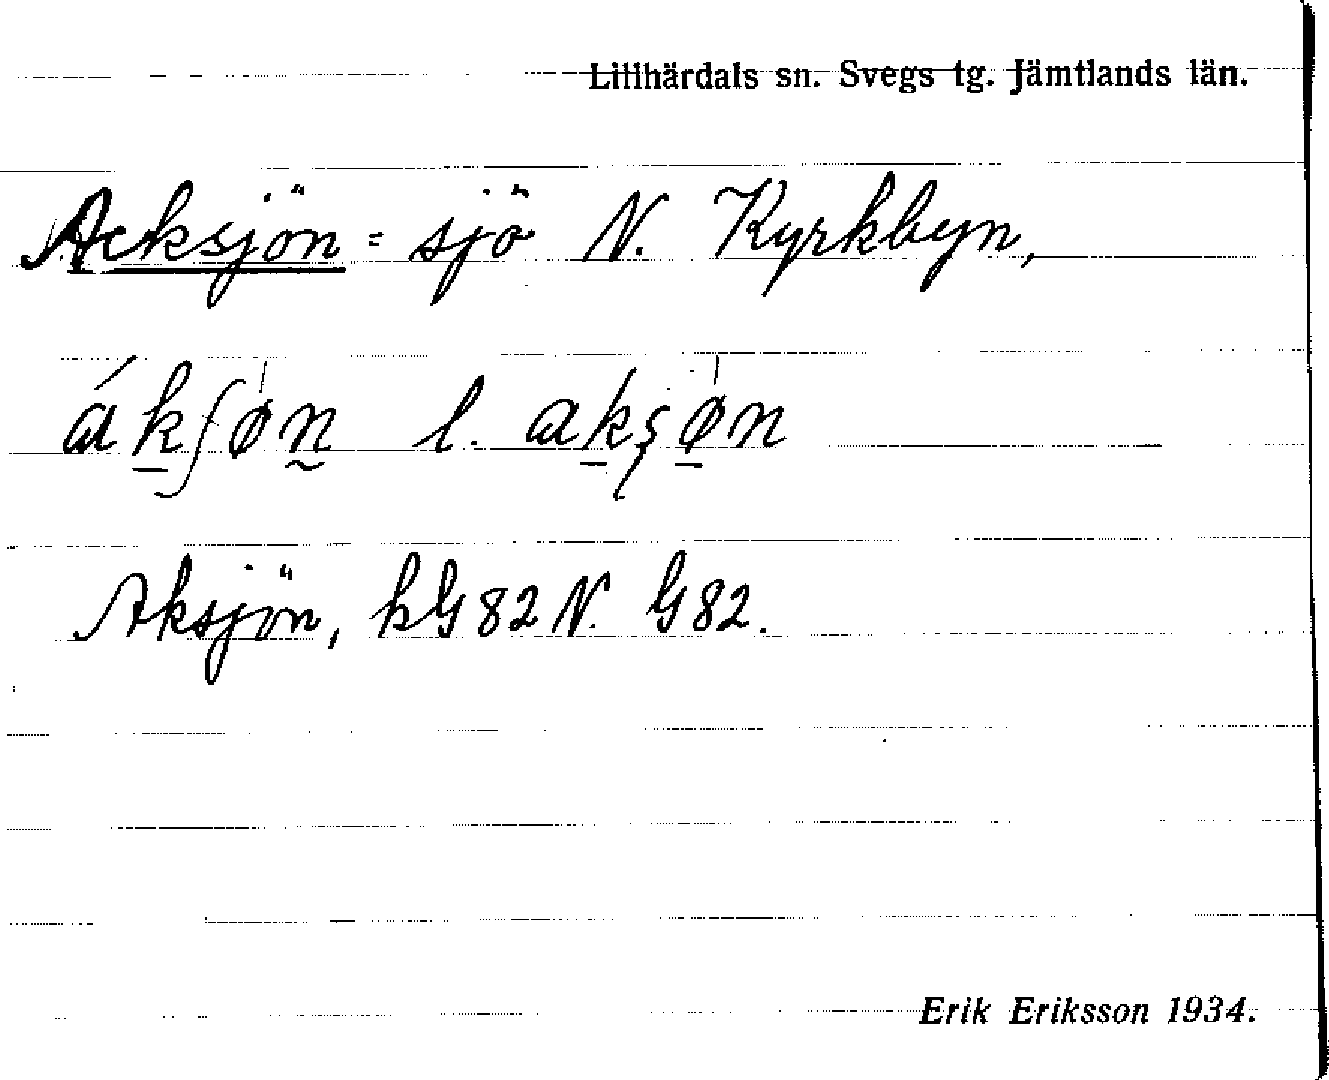 Lillhärdals sn. Svegs tg. Jämtlands län.
Acksjön = sjö N. Kyrkbyn,
ákʃøn l. akşøn
Aksjön, kG82 N. G82.
Erik Eriksson 1934.